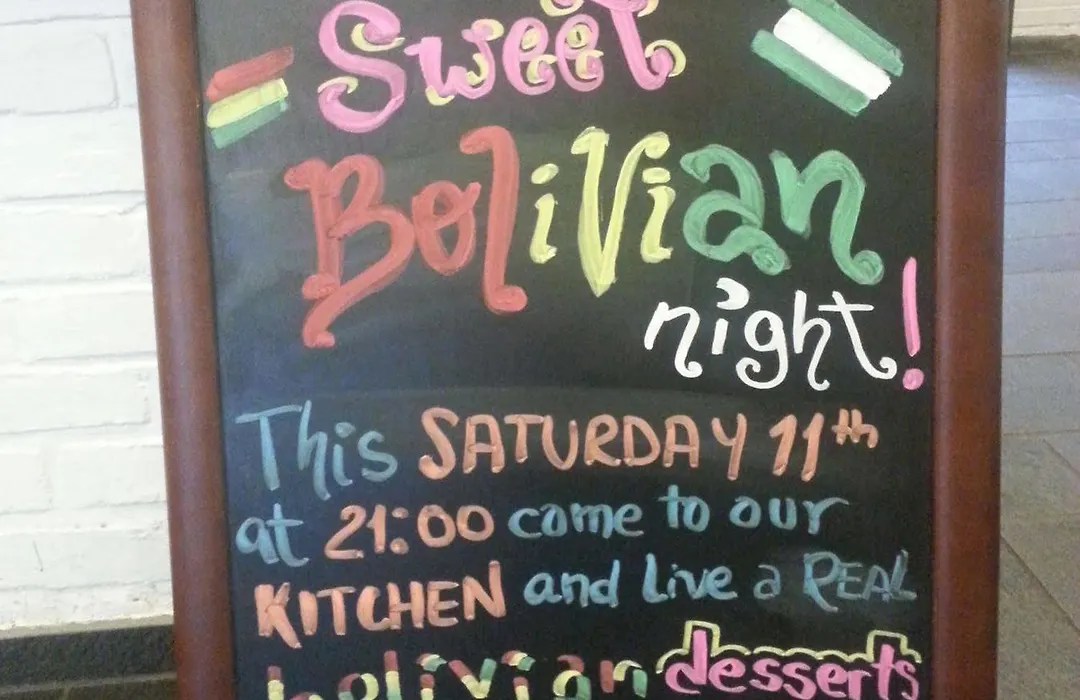 Sweet
BoliVian
night!
This SATURDAY 11th
at 21:00 come to our
KITCHEN and live a REAL
bolivian desserts